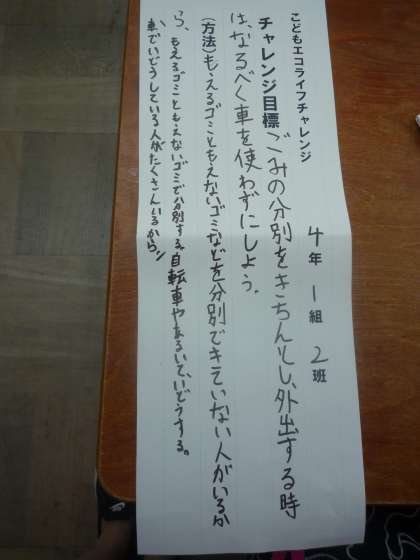 こどもエコライフチャレンジ
4年1組2班
チャレンジ目標ごみの分別をきちんとし、外出する時
は、なるべく車を使わずにしよう。
(方法)もえるゴミともえないゴミなどを分別できていない人がいるか
ら、もえるゴミともえないゴミで分別する。自転車やあるいていどうする。
車でいどうしている人がたくさんいるから